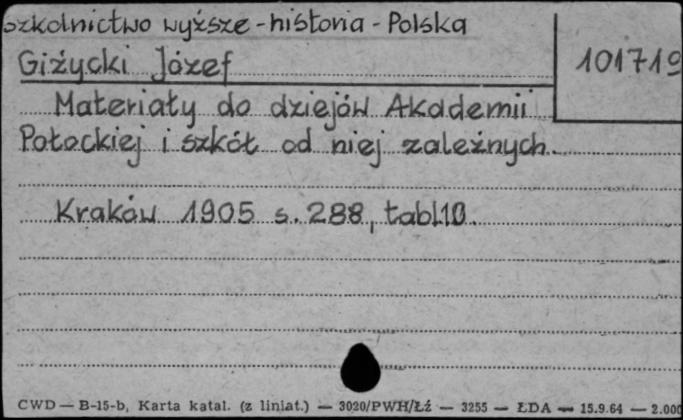 szkolnictwo wyższe - historia - Polska
Giżycki Józef
101719
Materiały do dziejów Akademii
Połockiej i szkół od niej zależnych.
Kraków 1905 s. 288, tabl.10.
CWD — B-15-b, Karta katal. (z liniat.) — 3020/PWH/Łź — 3255 — ŁDA — 15.9.64 — 2.000